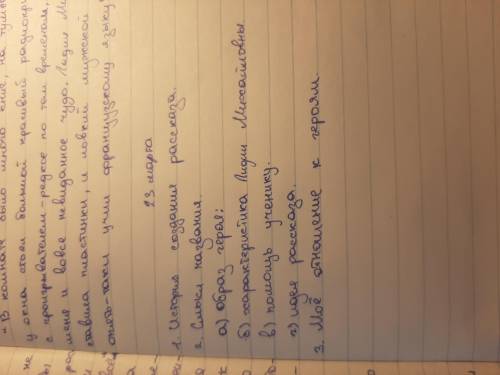 "В комнате было много книг, на тумбо
у окна стоял большой красивый радиопри
с проигрывателем-редкое по тем временам,
меня и вовсе невиданное чудо. Лидия Ми
ставила пластинки, и ловкий мужской
опять-таки учил французскому языку
23 марта
1. История создания рассказа.
2. Смысл названия.
а) образ героя;
б) характеристика Лидии Михайловны
в) помощь ученику.
г) идея рассказа.
3. Моё отношение к героям